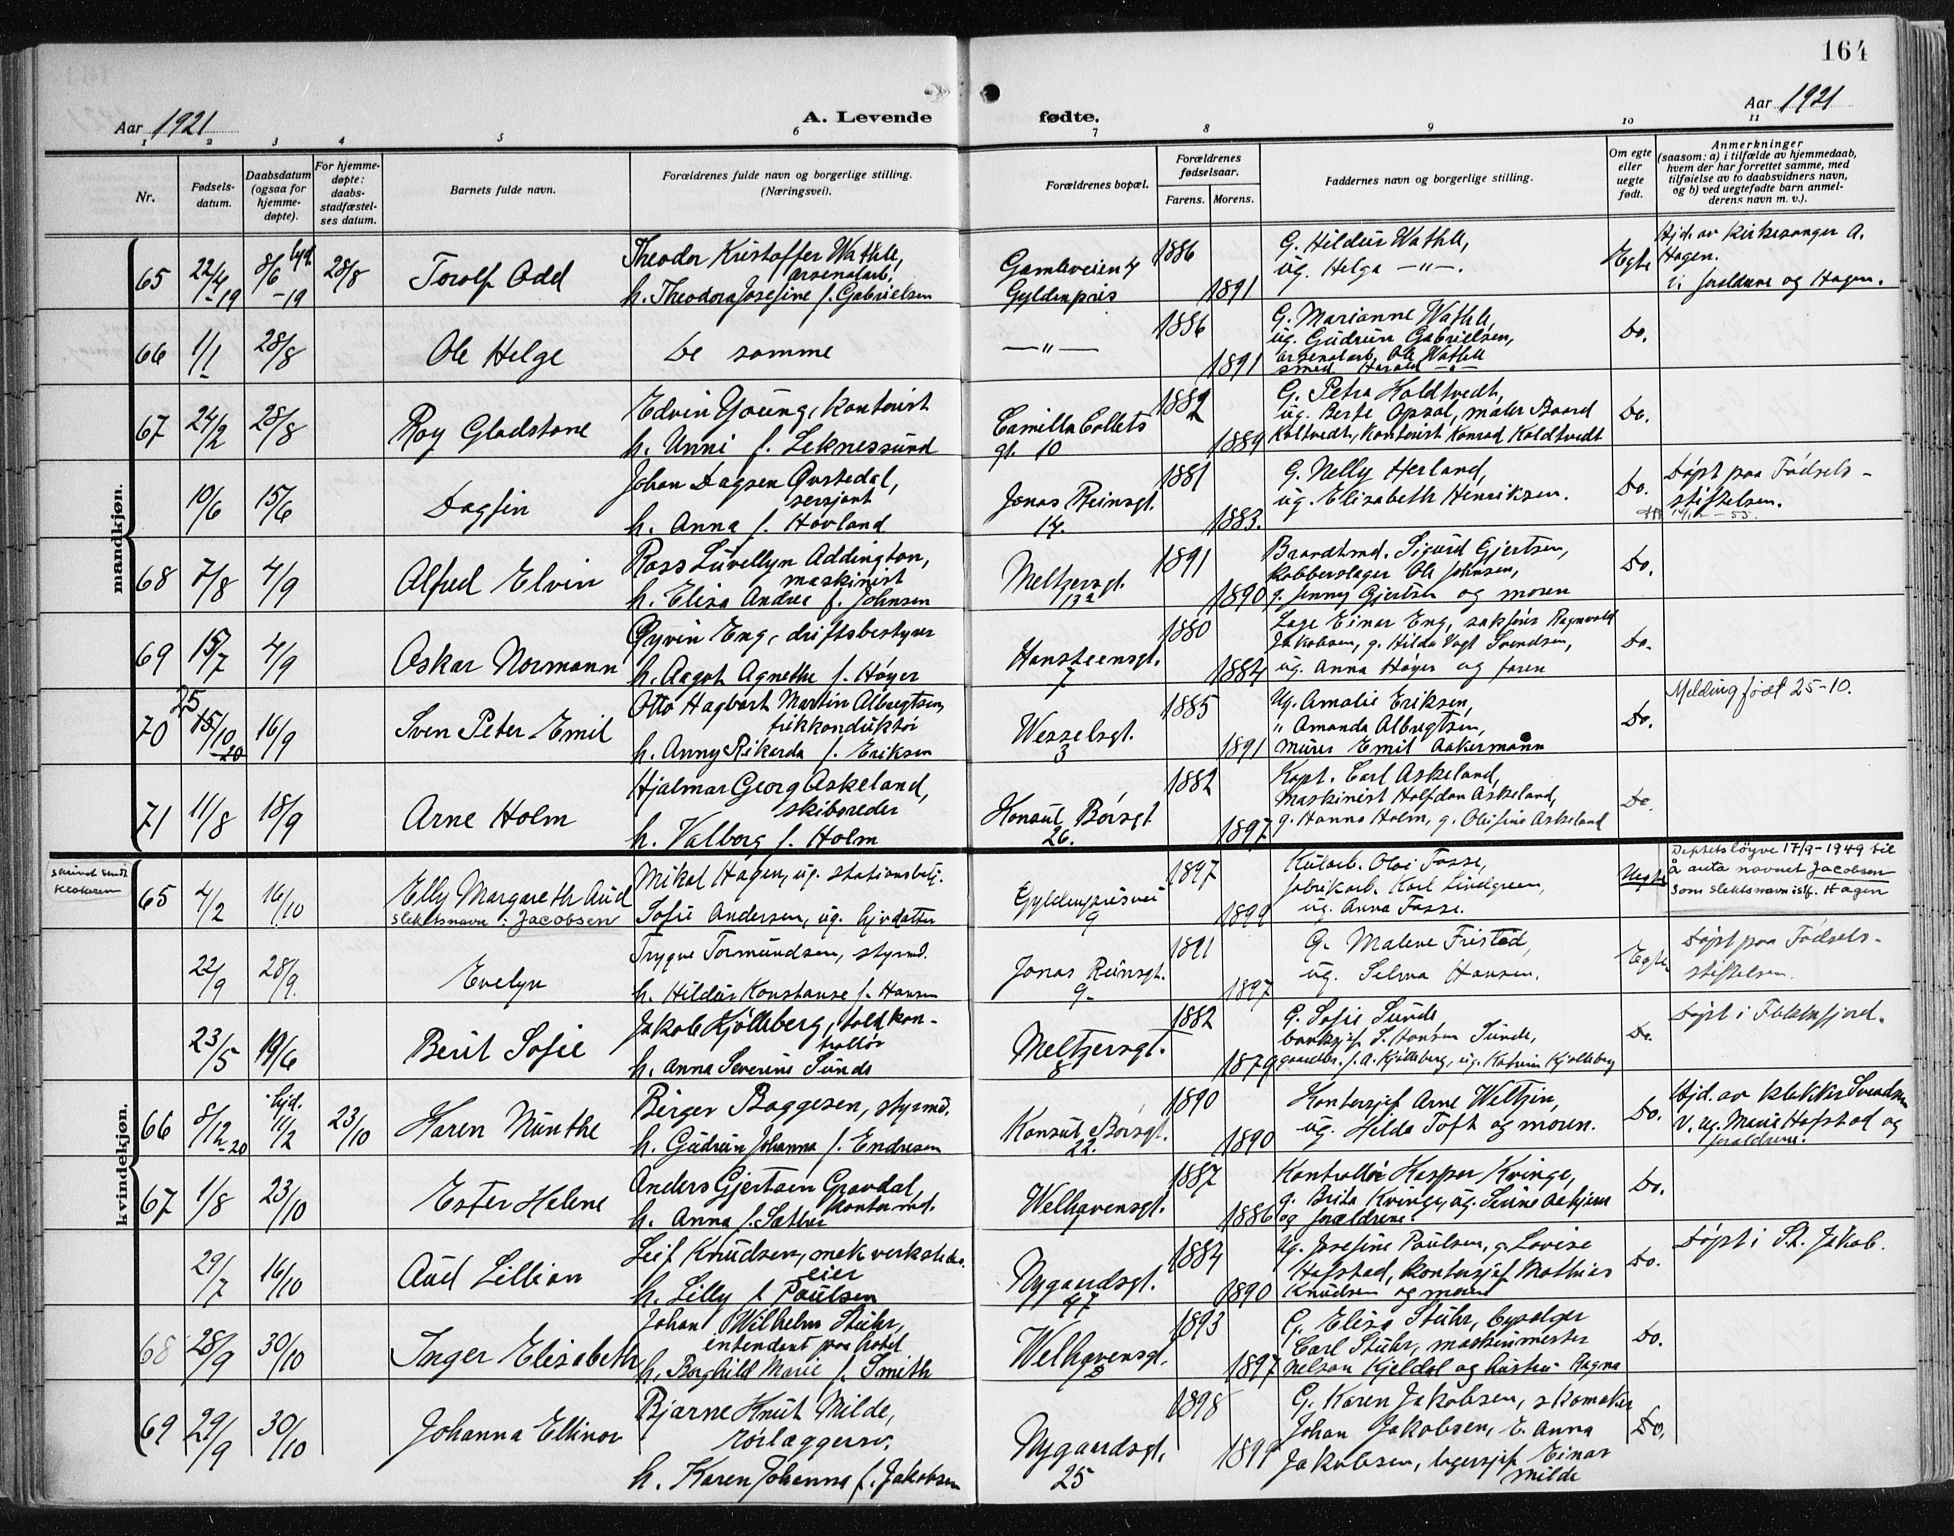 164
Aar 1921
A. Levende
fødte.
Aar 1921
1 2 3 4 5 6 7 8 9 10 11
Nr.
Fødsels-
datum.
Daabsdatum
(ogsaa for
hjemme-
døpte).
For hjemme-
døpte:
daabs-
stadfæstel-
ses datum.
Barnets fulde navn.
Forældrenes fulde navn og borgerlige stilling.
(Næringsvei).
Forældrenes bopæl.
Forældrenes
fødselsaar.
Farens. Morens.
Faddernes navn og borgerlige stilling.
Om egte
eller
uegte
født.
Anmerkninger
(saasom: a) i tilfælde av hjemmedaab,
hvem der har forrettet samme, med
tilføielse av to daabsvidners navn,
og b) ved uegtefødte barn anmel-
derens navn m. v.).
mandkjøn.
65 22/4 -19 8/6 -19 hjd. 28/8 Torolf Odd
Theodor Kristoffer Wathle,
arsenalarb.
h. Theodora Josefine f. Gabrielsen
Gamleveien 4
Gyldenpris
1886
1891
G. Hildur Wathle,
ug. Helga —"—.
Egte
Hjd. av kirkesanger A.
Hagen.
foreldrene og Hagen.
66 1/1 28/8 Ole Helge
De samme
—"—
1886
1891
G. Marianne Wathle,
ug. Gudrun Gabrielsen,
arsenalarb. Ole Wathle
smed Harald —"—
Do.
67 24/2 28/8 Roy Gladstone
Edvin Young, kontorist
h. Unni f. Leknessund
Camilla Collets
gt. 10
1882
1889
G. Petra Koldtvedt,
ug. Berte Opsal, maler Baard
Koltvedt, kontorist Konrad Koldtvedt
Do.
10/6 15/6 Dagfin
Johan Dagsen Øvstedal,
sersjant
h. Anna f. Hovland
Jonas Reinsgt.
14.
1881
1883.
G. Nelly Herland,
ug. Elisabeth Henriksen.
Do.
Døpt paa Fødsels-
stiftelsen.
68 7/8 4/9 Alfred Elvin
Ross Luvellyn Addington,
maskinist
h. Elisa Andrea f. Johnsen
Meltzersgt.
13a
1891
1890
Brandtmd. Sigurd Gjertsen,
kobberslager Ole Johnsen,
g. Jenny Gjertsen og moren
Do.
69 15/7 4/9 Oskar Normann
Øyvin Eng, driftsbestyrer
h. Aagot Agnethe f. Høyer
Hansteensgt.
7
1880
1884
Lage Einar Eng, sakfører Ragnvald
Jakobsen, g. Hilda Vogt Svendsen,
ug. Anna Høyer og faren
Do.
70 25 15/10 -20 16/9 Sven Peter Emil
Otto Hagbart Martin Albregtsen,
trikkonduktør
h. Anny Rikarda f. Eriksen
Wesselsgt.
3
1885
1891
Ug. Amalie Eriksen,
" Amanda Albregtsen,
murer Emil Aakermann
Do.
Melding født 25-10.
71 11/8 18/9 Arne Holm
Hjalmar Georg Askeland,
skibsreder
h. Valborg f. Holm
Konsul Børsgt
26.
1882
1897
Kapt. Carl Askeland,
maskinist Halfdan Askeland,
g. Hanna Holm, g. Olufine Askeland
Do.
kvindekjøn.
klokeren
65 4/2 16/10 Elly Margareth Aud
slektsnavn: Jacobsen
Mikal Hagen, ug. stationsbetj.
Sofie Andersen, ug. hjvdatter
Gyldenprisvei
9
1897
1899
Kularb. Olai Fosse,
fabrikarb. Karl Lindgreen,
ug. Anna Fosse.
Uegte
Deptets løyve 17/9-1949 til
å anta navnet Jacobsen
som slektsnavn istf. Hagen
22/9 28/9. Evelyn
Trygve Tormundsen, styrmd.
h. Hildur Konstanse f. Hansen
Jonas Reinsgt.
9-
1891
1897
G. Malene Fristad,
ug. Selma Hansen.
Egte.
Døpt paa Fødsels-
stiftelsen.
23/5 19/6 Berit Sofie
Jakob Kjølleberg, toldkon-
trollør
h. Anna Severine Sunde
Meltzersgt.
8
1882
1879
G. Sofie Sunde,
banksjef S. Hansen Sunde,
gaardbr. J. A. Kjølleberg, ug. Katrine Kjølleberg
Do.
Døpt i Flekkefjord.
66 8/12 -20 hjd. 11/2 23/10 Karen Munthe
Birger Baggesen, styrmd.
h. Gudrun Johanna f. Endresen
Konsul Børsgt.
22.
1890
1890
Kontorsjef Arne Weltzin,
ug. Hilda Toft og moren.
Do.
Hjd. av klokker Svendsen
v. ug. Marie Hofstad og
foreldrene.
67 1/8 23/10 Ester Helene
Anders Gjertsen Gravdal,
kontormd.
h. Anna f. Sæther
Welhavensgt.
1887
1886
Kontrollør Kasper Kvinge,
g. Brita Kvinge, ug.
og forældrene.
Do.
29/7 16/10 Aud Lillian
Leif Knudsen, mek verksteds.
eier
h. Lilly f. Paulsen
Nygaardsgt.
47
1884
1890
Ug. Josefine Paulsen, g. Lovise
Hofstad, kontorsjef Mathias
Knudsen og moren
Do.
Døpt i St. Jakob.
68 28/9 30/10 Inger Elisabeth
Johan Wilhelm Stuhr,
intendant paa hotel
h. Borghild Marie f. Smith
Welhavensgt.
1893
1897
G. Elisa Stuhr, byselger
Carl Stuhr, maskinmester
Nelson Kjeldal og hustru Ragna
Do.
69 29/9 30/10 Johanna Ellinor
Bjarne Knut Milde,
rørlæggersv.
h. Karen Johanna f. Jakobsen
Nygaardsgt.
25
1898
1899
G. Karen Jakobsen, skomaker
Johan Jakobsen, E. Anna
Jakobsen, lagersjef Einar
Milde
Do.